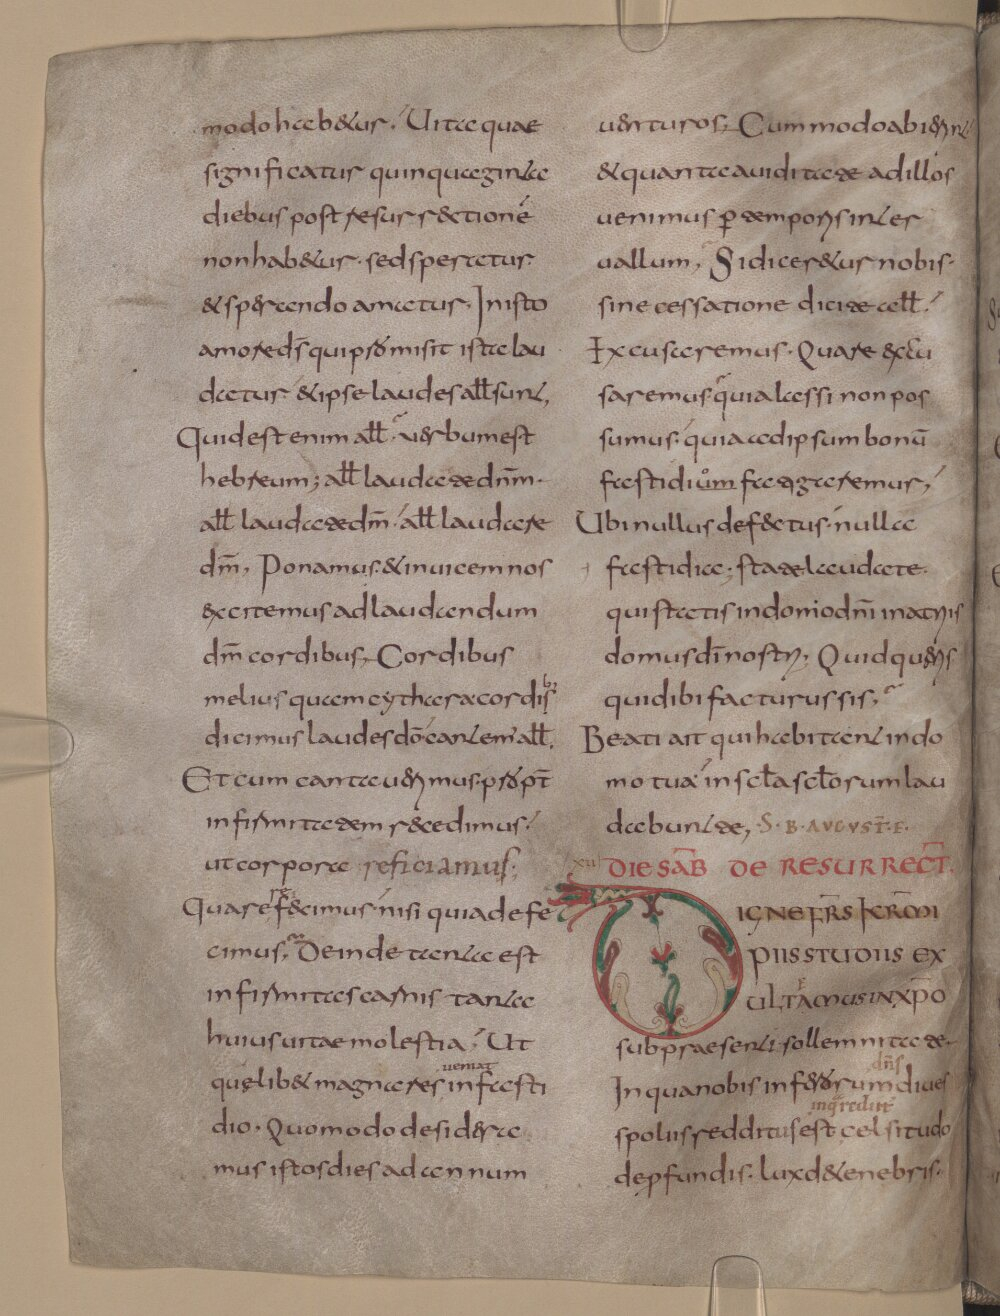 modo habetur. Uita quae
significatur quinquaginta
diebus post resurrectionē
non habetur. sed speratur
& sperando amatur. In isto
amore dī qui promisit ista lau
datur & ipse laudes all̄ sunt,
Quid est enim all̄. uerbum est
hebreum; all̄ laudate dn̄m.
all̄ laudate dm̄. all̄ laudate
dm̄, Ponamus. & inuicem nos
excitemus ad laudandum
dm̄ cordibus, Cordibus
melius quam cythara cordisb;
dicimus laudes dō cantem all̄,
Et cum cantauerimus. propt̄
infirmitatem recedimus.
ut corpora reficiamus;
Quare refecimus. nisi quia defe
cimus, Deinde tanta est
infirmitas carnis tanta
huius uitae molestia, Ut
quelib& magna res ueniat in fasti
dio. Quomodo desidera
mus istos dies ad annum
uenturos, Cum modo abierint
& quanta auiditate ad illos
uenimus per temporis inter
uallum, Si diceretur nobis.
sine cessatione dicite all̄.
Excusaremus. Quare excu
saremus. quia lassi non pos
sumus. quia ad ipsum bonū
fastidium fatigaremus,
Ubi nullus defectus. nulla
fastidia; state laudate.
qui statis in domo dn̄i in atriis
domus dī nostri, Quid queris
quid ibi facturus sis,
Beati ait qui habitant in do
mo tua. in scl̄a scl̄orum lau
dabunt te, S. B. AVGVST̄. E.
xu DIE SAB̄ DE RESURRECT̄.
DIGNE FR̄S KR̄MI
PIIS STUDIIS EX
ULTAMUS IN XP̄O
sub praesenti sollemnitate.
In qua nobis inferorum dn̄s diues
spoliis redditus est ingreditur celsitudo
de pfundis. lux d& enebris.